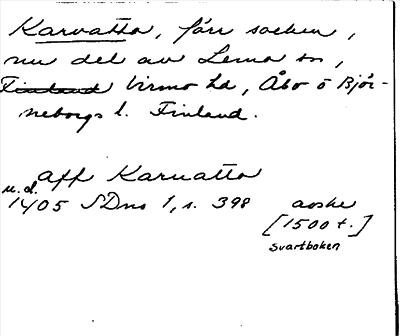 Karvatto, förr socken,
nu del av Lemo sn,
Finland Virmo hd, Åbo o Björ-
neborgs l. Finland.
aff Karuatto
u.d.
1405 SDns 1, s. 398 avskr
[1500 t.]
Svartboken